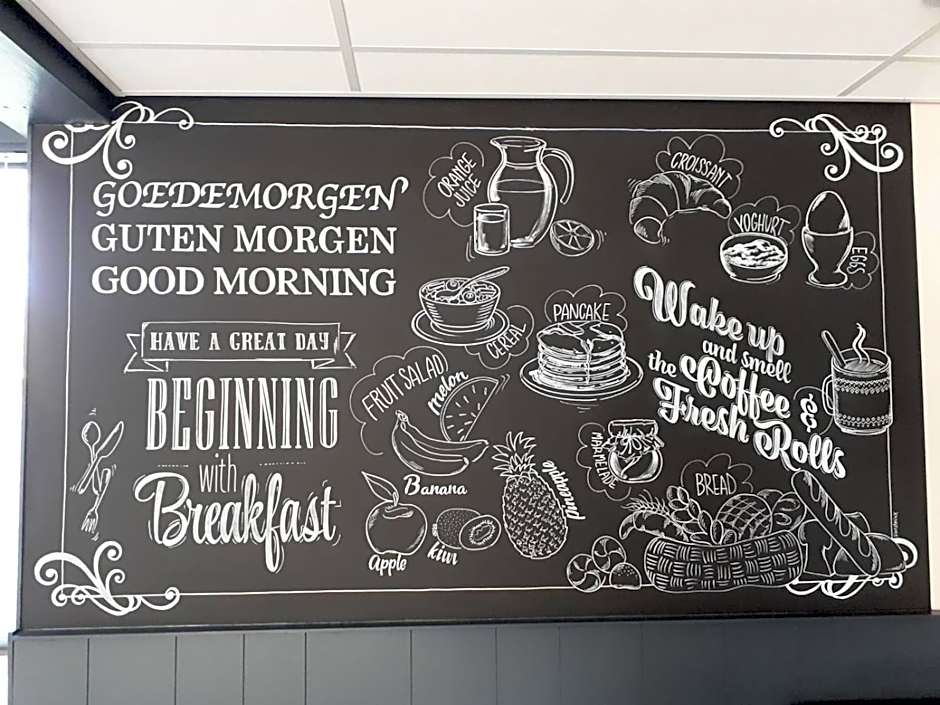 GOEDEMORGEN
GUTEN MORGEN
GOOD MORNING
HAVE A GREAT DAY
BEGINNING
with
Breakfast
ORANGE
JUICE
CROISSANT
YOGHURT
EGGS
CEREAL
PANCAKE
FRUIT SALAD
melon
Banana
Apple
kiwi
pineapple
MARMELADE
BREAD
Wake up
and smell
the Coffee &
Fresh Rolls